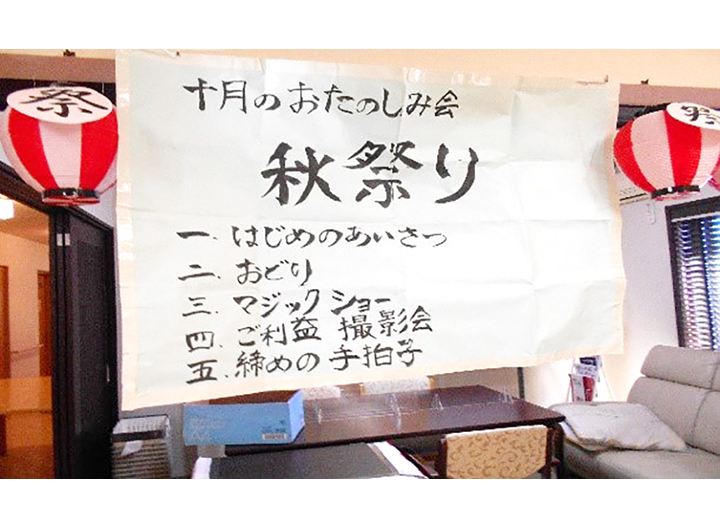 十月のおたのしみ会
秋祭り
一. はじめのあいさつ
二. おどり
三. マジックショー
四. ご利益 撮影会
五. 締めの手拍子
祭
祭